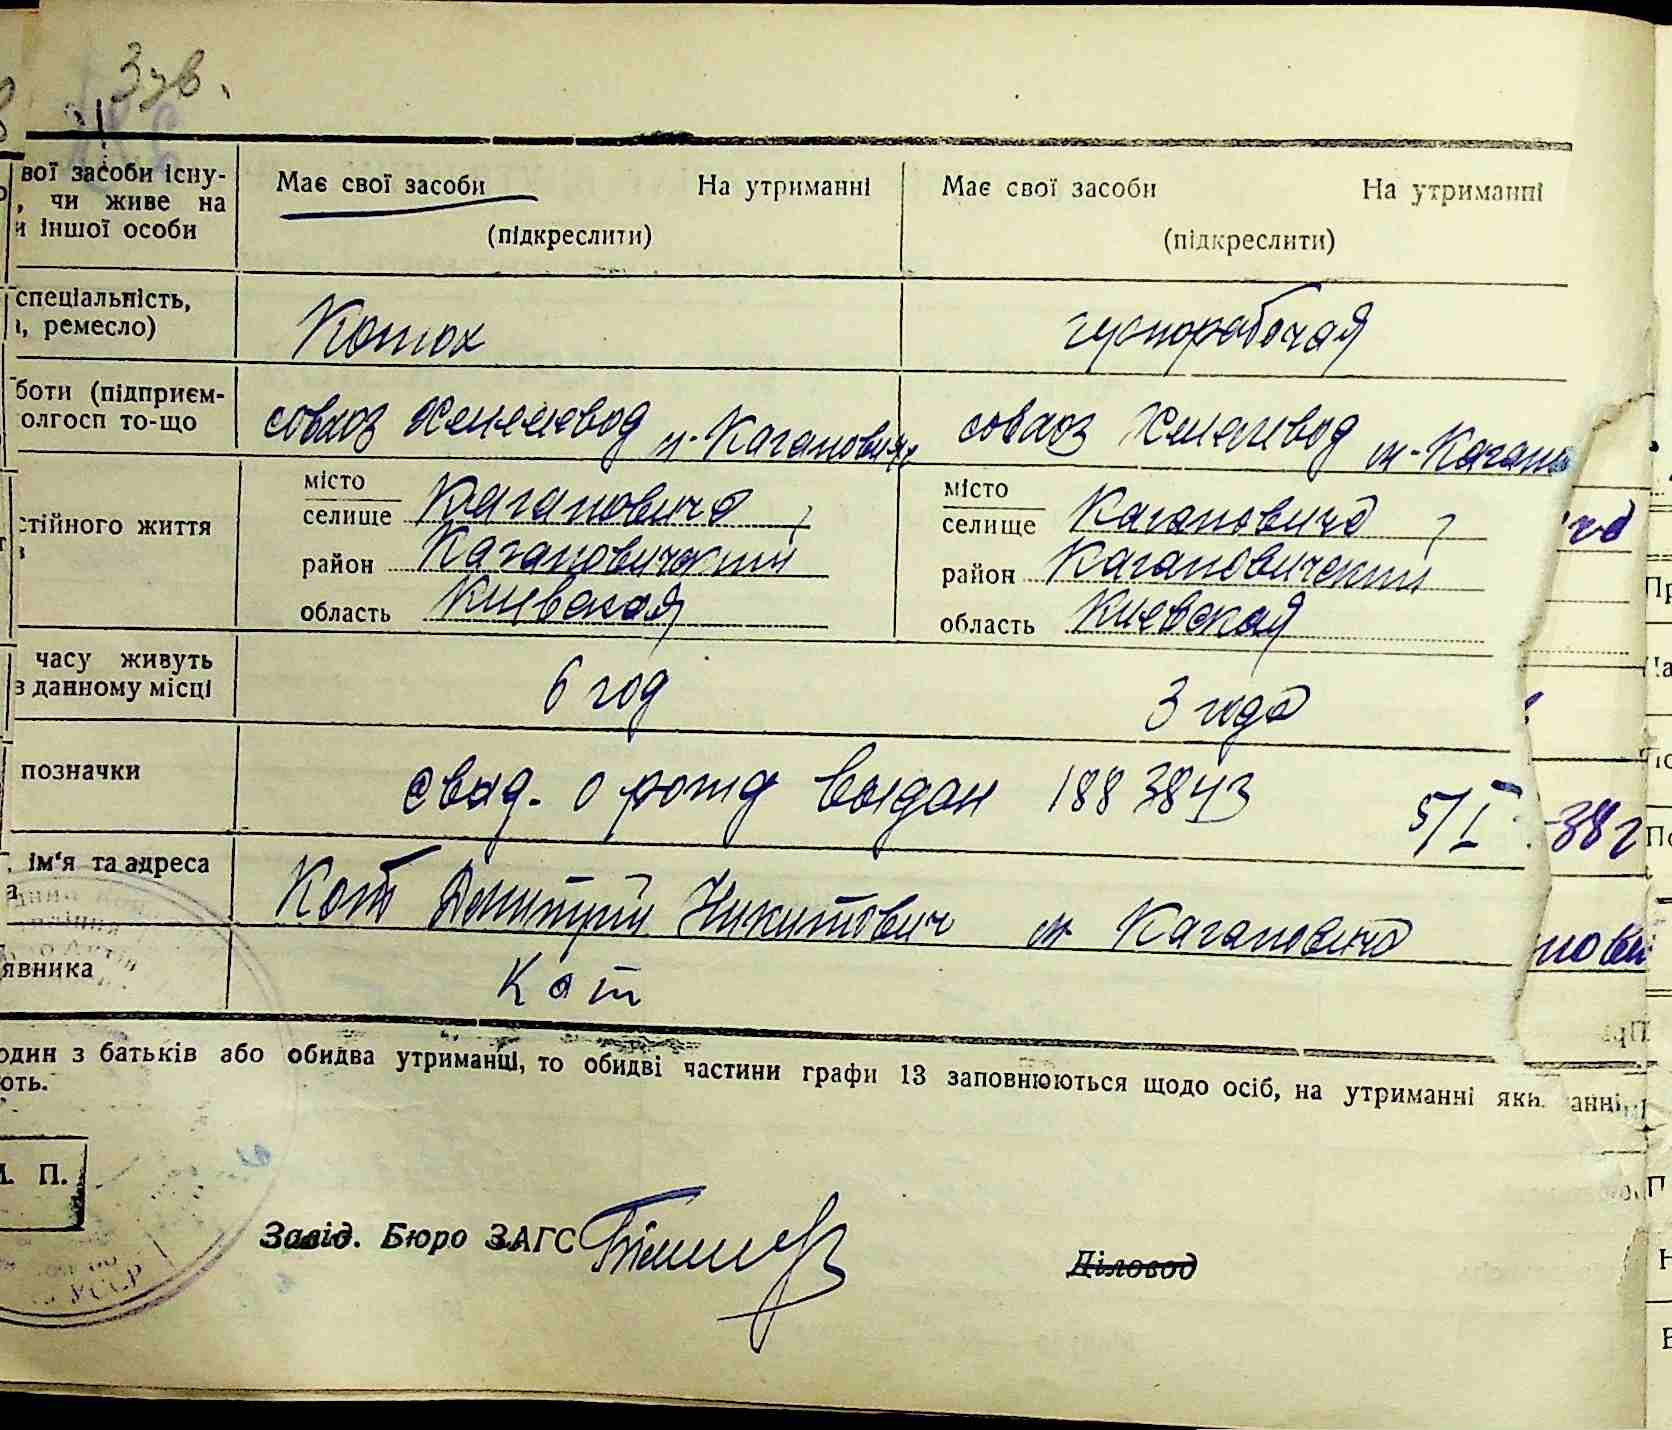 Зув.
вої засоби існу- Має свої засоби На утриманні Має свої засоби На утриманні
, чи живе на
и іншої особи (підкреслити) (підкреслити)
спеціальність,
, ремесло) Конюх чернорабочая
боти (підприєм-
олгосп то-що совхоз Хмелевод м-Каганович совхоз Хмелевод м-Кагано
місто місто
стійного життя селище Кагановича селище Кагановича
район Кагановический район Кагановический
область Киевская область Киевская
часу живуть
в данному місці 6 год 3 года
позначки свид. о рожд выдан 1883843 5/I -38 г
ім'я та адреса
Кот Дмитрий Никитович м Кагановича
явника Кот
один з батьків або обидва утриманці, то обидві частини графи 13 заповнюються щодо осіб, на утриманні яки
ють.
М. П.
Завід. Бюро ЗАГС Діловод
УССР